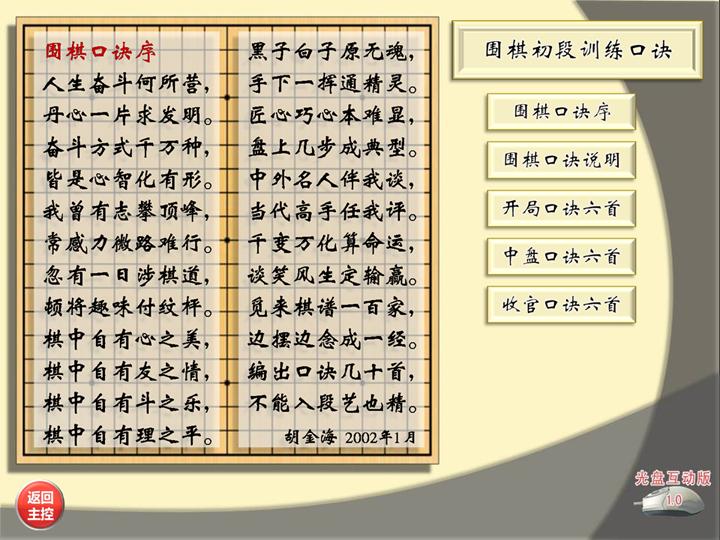 围棋口诀序
人生奋斗何所营，
丹心一片求发明。
奋斗方式千万种，
皆是心智化有形。
我曾有志攀顶峰，
常感力微路难行。
忽有一日涉棋道，
顿将趣味付纹枰。
棋中自有心之美，
棋中自有友之情，
棋中自有斗之乐，
棋中自有理之平。
黑子白子原无魂，
手下一挥通精灵。
匠心巧心本难显，
盘上几步成典型。
中外名人伴我谈，
当代高手任我评。
千变万化算命运，
谈笑风生定输赢。
觅来棋谱一百家，
边摆边念成一经。
编出口诀几十首，
不能入段艺也精。
胡金海 2002年1月
围棋初段训练口诀
围棋口诀序
围棋口诀说明
开局口诀六首
中盘口诀六首
收官口诀六首
返回
主控
光盘互动版
1.0